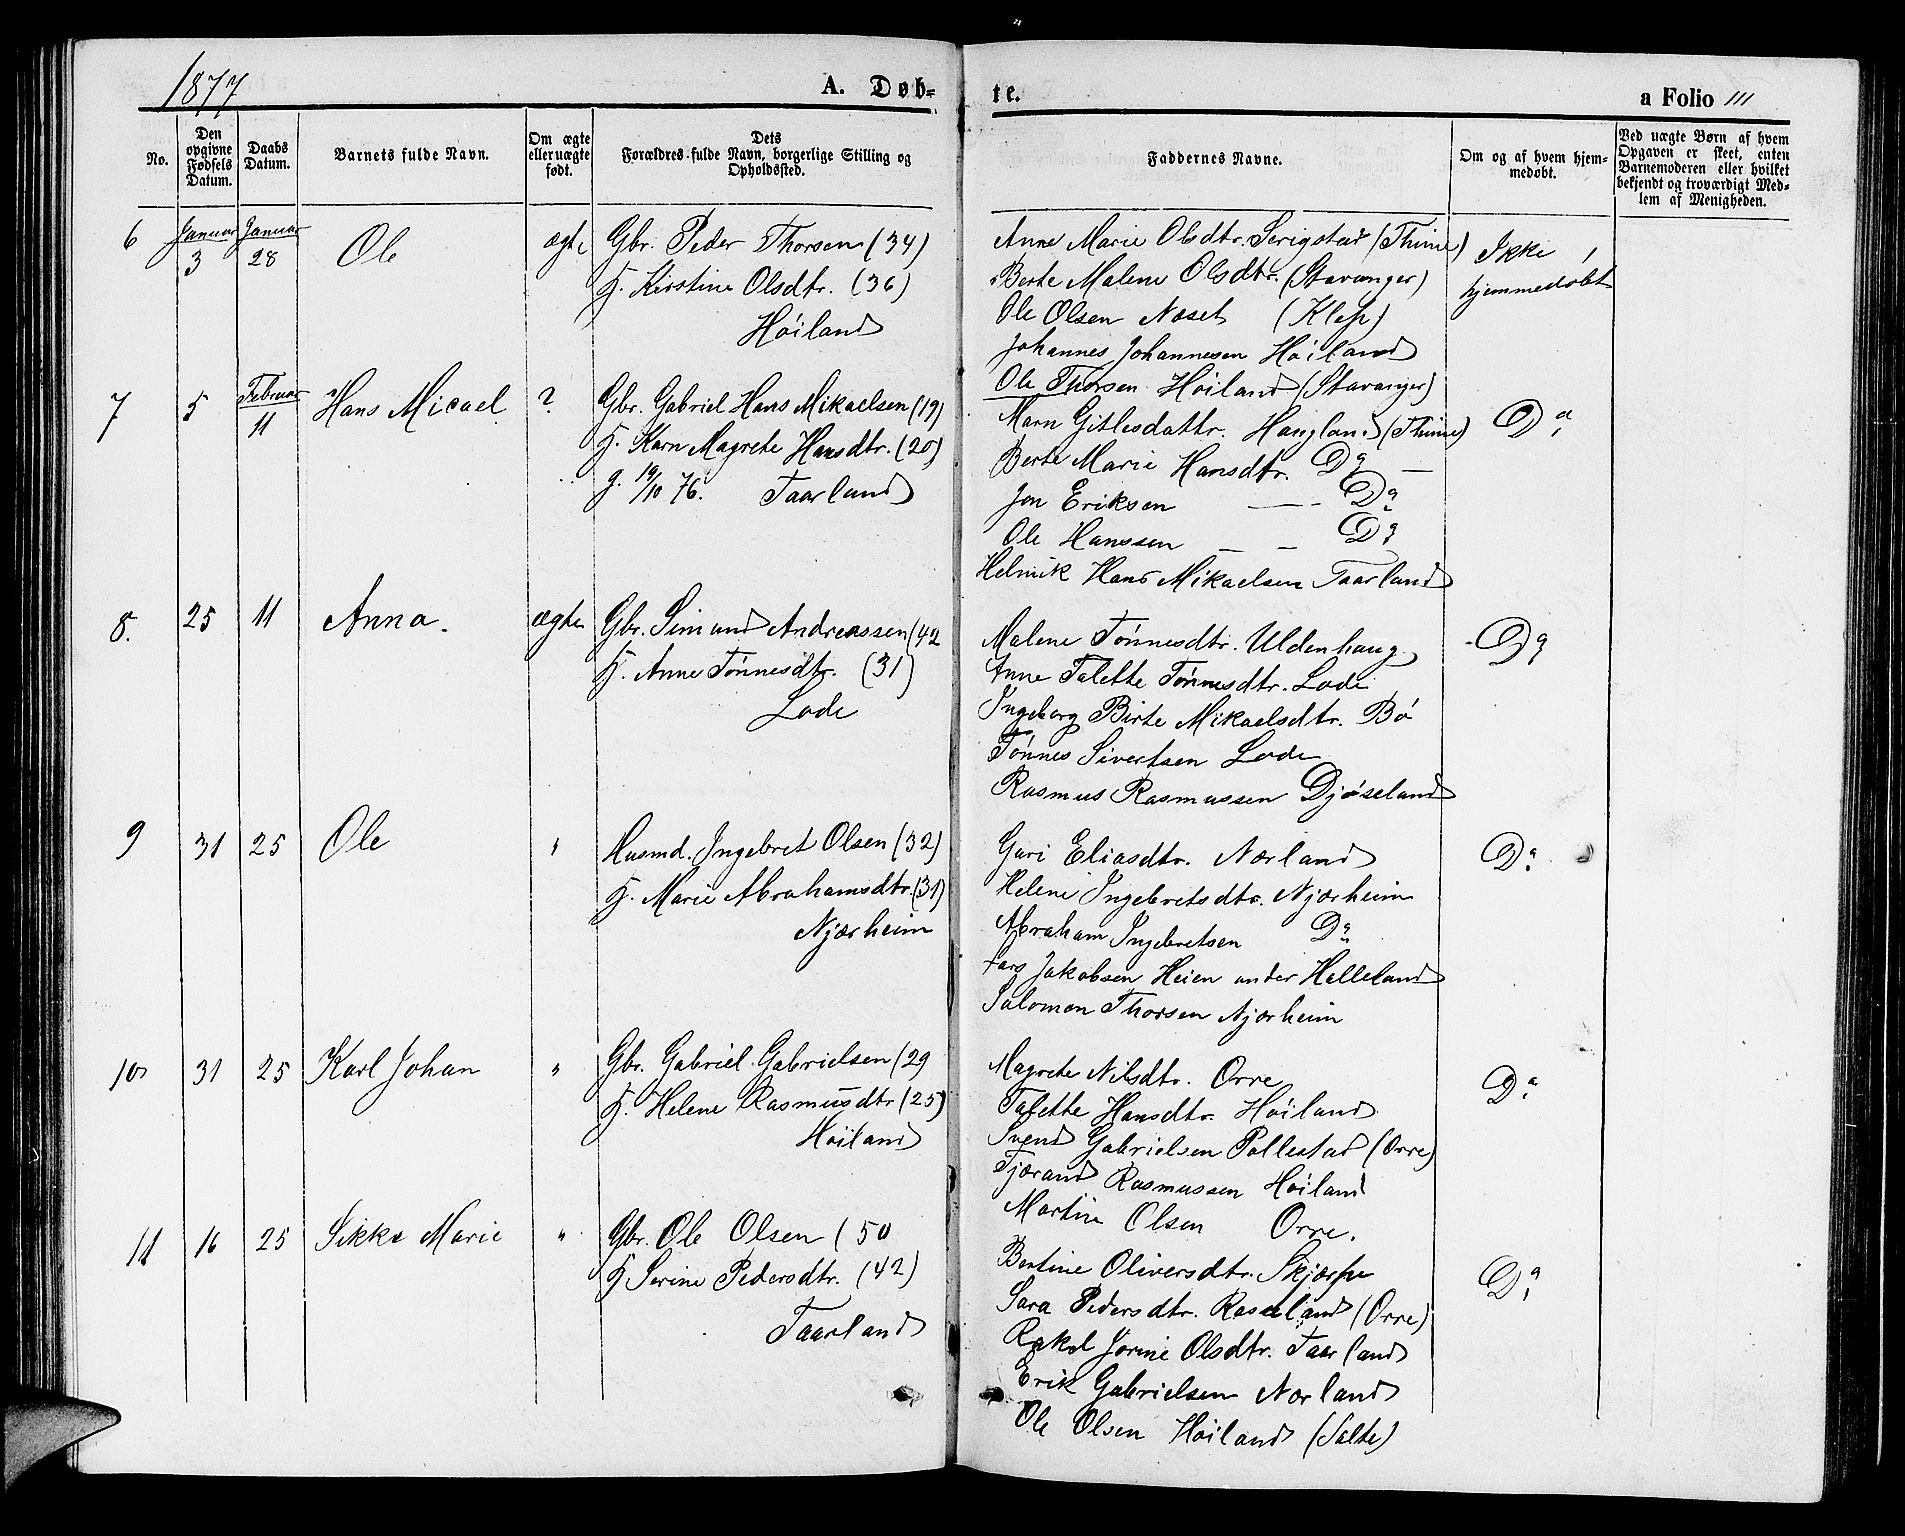 1877
A. Døb-
te.
a Folio 111
No.
Den opgivne Fødsels Datum.
Daabs Datum.
Barnets fulde Navn.
Om ægte eller uægte født.
Dets Forældres fulde Navn, borgerlige Stilling og Opholdssted.
Faddernes Navne.
Om og af hvem hjemmedøbt.
Ved uægte Børn af hvem Opgaven er skeet, enten Barnemoderen eller hvilket bekjendt og troværdigt Medlem af Menigheden.
6 Januar 3 Januar 28 Ole ægte
Gbr. Peder Thorsen (34)
H. Kirstine Olsdtr. (36)
Höiland
Anne Marie Olsdtr. Serigstad (Thime)
Berte Malene Olsdtr. (Stavanger)
Ole Olsen Næset (Klep)
Johannes Johannesen Höiland
Ole Thorsen Höiland (Stavanger)
Ikke hjemmedøbt
7 5 Februar 11 Hans Micael ?
Gbr. Gabriel Hans Mikaelsen (19)
H. Karn Magrete Hansdtr. (20)
g. 19/10 76. Taarland
Marn Gitlesdattr. Haugland (Thime)
Berte Marie Hansdtr. Do —
Jon Eriksen — - Do
Ole Hanssen — — Do
Helmik Hans Mikaelsen Taarland
Do
8. 25 11 Anna. ægte
Gbr. Simund Andreassen (42
H. Anne Tönnesdtr. (31)
Lode
Malene Tönnesdtr. Uldenhaug
Anne Talette Tönnesdtr. Lode
Ingeborg Birte Mikaelsdtr. Bö
Tönnes Sivertsen Lode
Rasmus Rasmussen Djöseland
Do
9 31 25 Ole "
Husmd. Ingebret Olsen (32)
H. Marie Abrahamsdtr. (31)
Njærheim
Guri Eliasdtr. Nærland
Helene Ingebretsdtr. Njærheim
Abraham Ingebretsen Do
Lars Jakobsen Heien under Helleland
Salomon Thorsen Njærheim
Do
10 31 25 Karl Johan "
Gbr. Gabriel Gabrielsen (29
H. Helene Rasmusdtr (25)
Höiland
Magrete Nilsdtr. Orre
Talette Hansdtr. Höiland
Svend Gabrielsen Pollestad (Orre)
Tjærand Rasmussen Höiland
Martin Olsen Orre.
Do
11 16 25 Sikke Marie "
Gbr. Ole Olsen (50
H Serine Pedersdtr. (42)
Taarland
Bertine Oliversdtr. Skjærpe
Sara Pedersdtr. Roseland (Orre)
Rakel Jorine Olsdtr. Taarland
Erik Gabrielsen Nærland
Ole Olsen Höiland (Salte)
Do